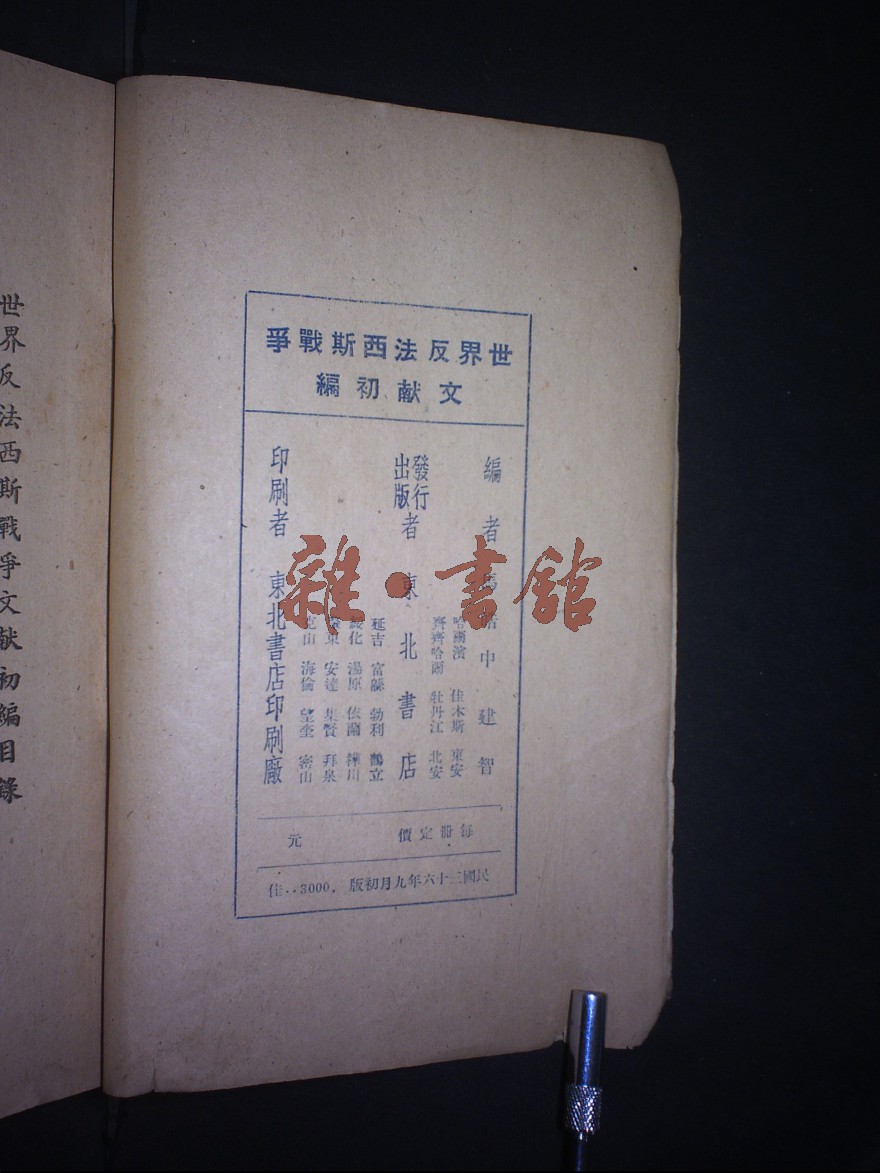 世界反法西斯戰爭
文献初編
編者 中建智
哈爾濱 佳木斯 東安
齊齊哈爾 牡丹江 北安
發行
出版
者 東北書店
延吉 富錦 勃利 鶴立
綏化 湯原 依蘭 樺川
肇東 安達 集賢 拜泉
克山 海倫 望奎 密山
印刷者 東北書店印刷廠
每冊定價 元
民國三十六年九月初版.3000..佳
世界反法西斯戰爭文献初編目錄
雜·書館